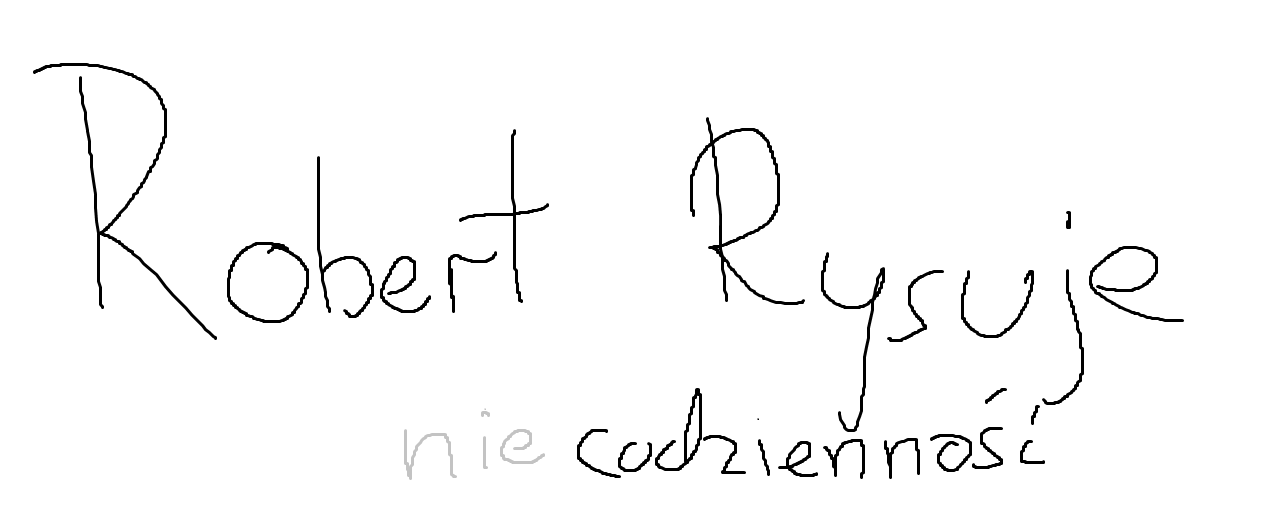 Robert Rysuje
niecodzienność